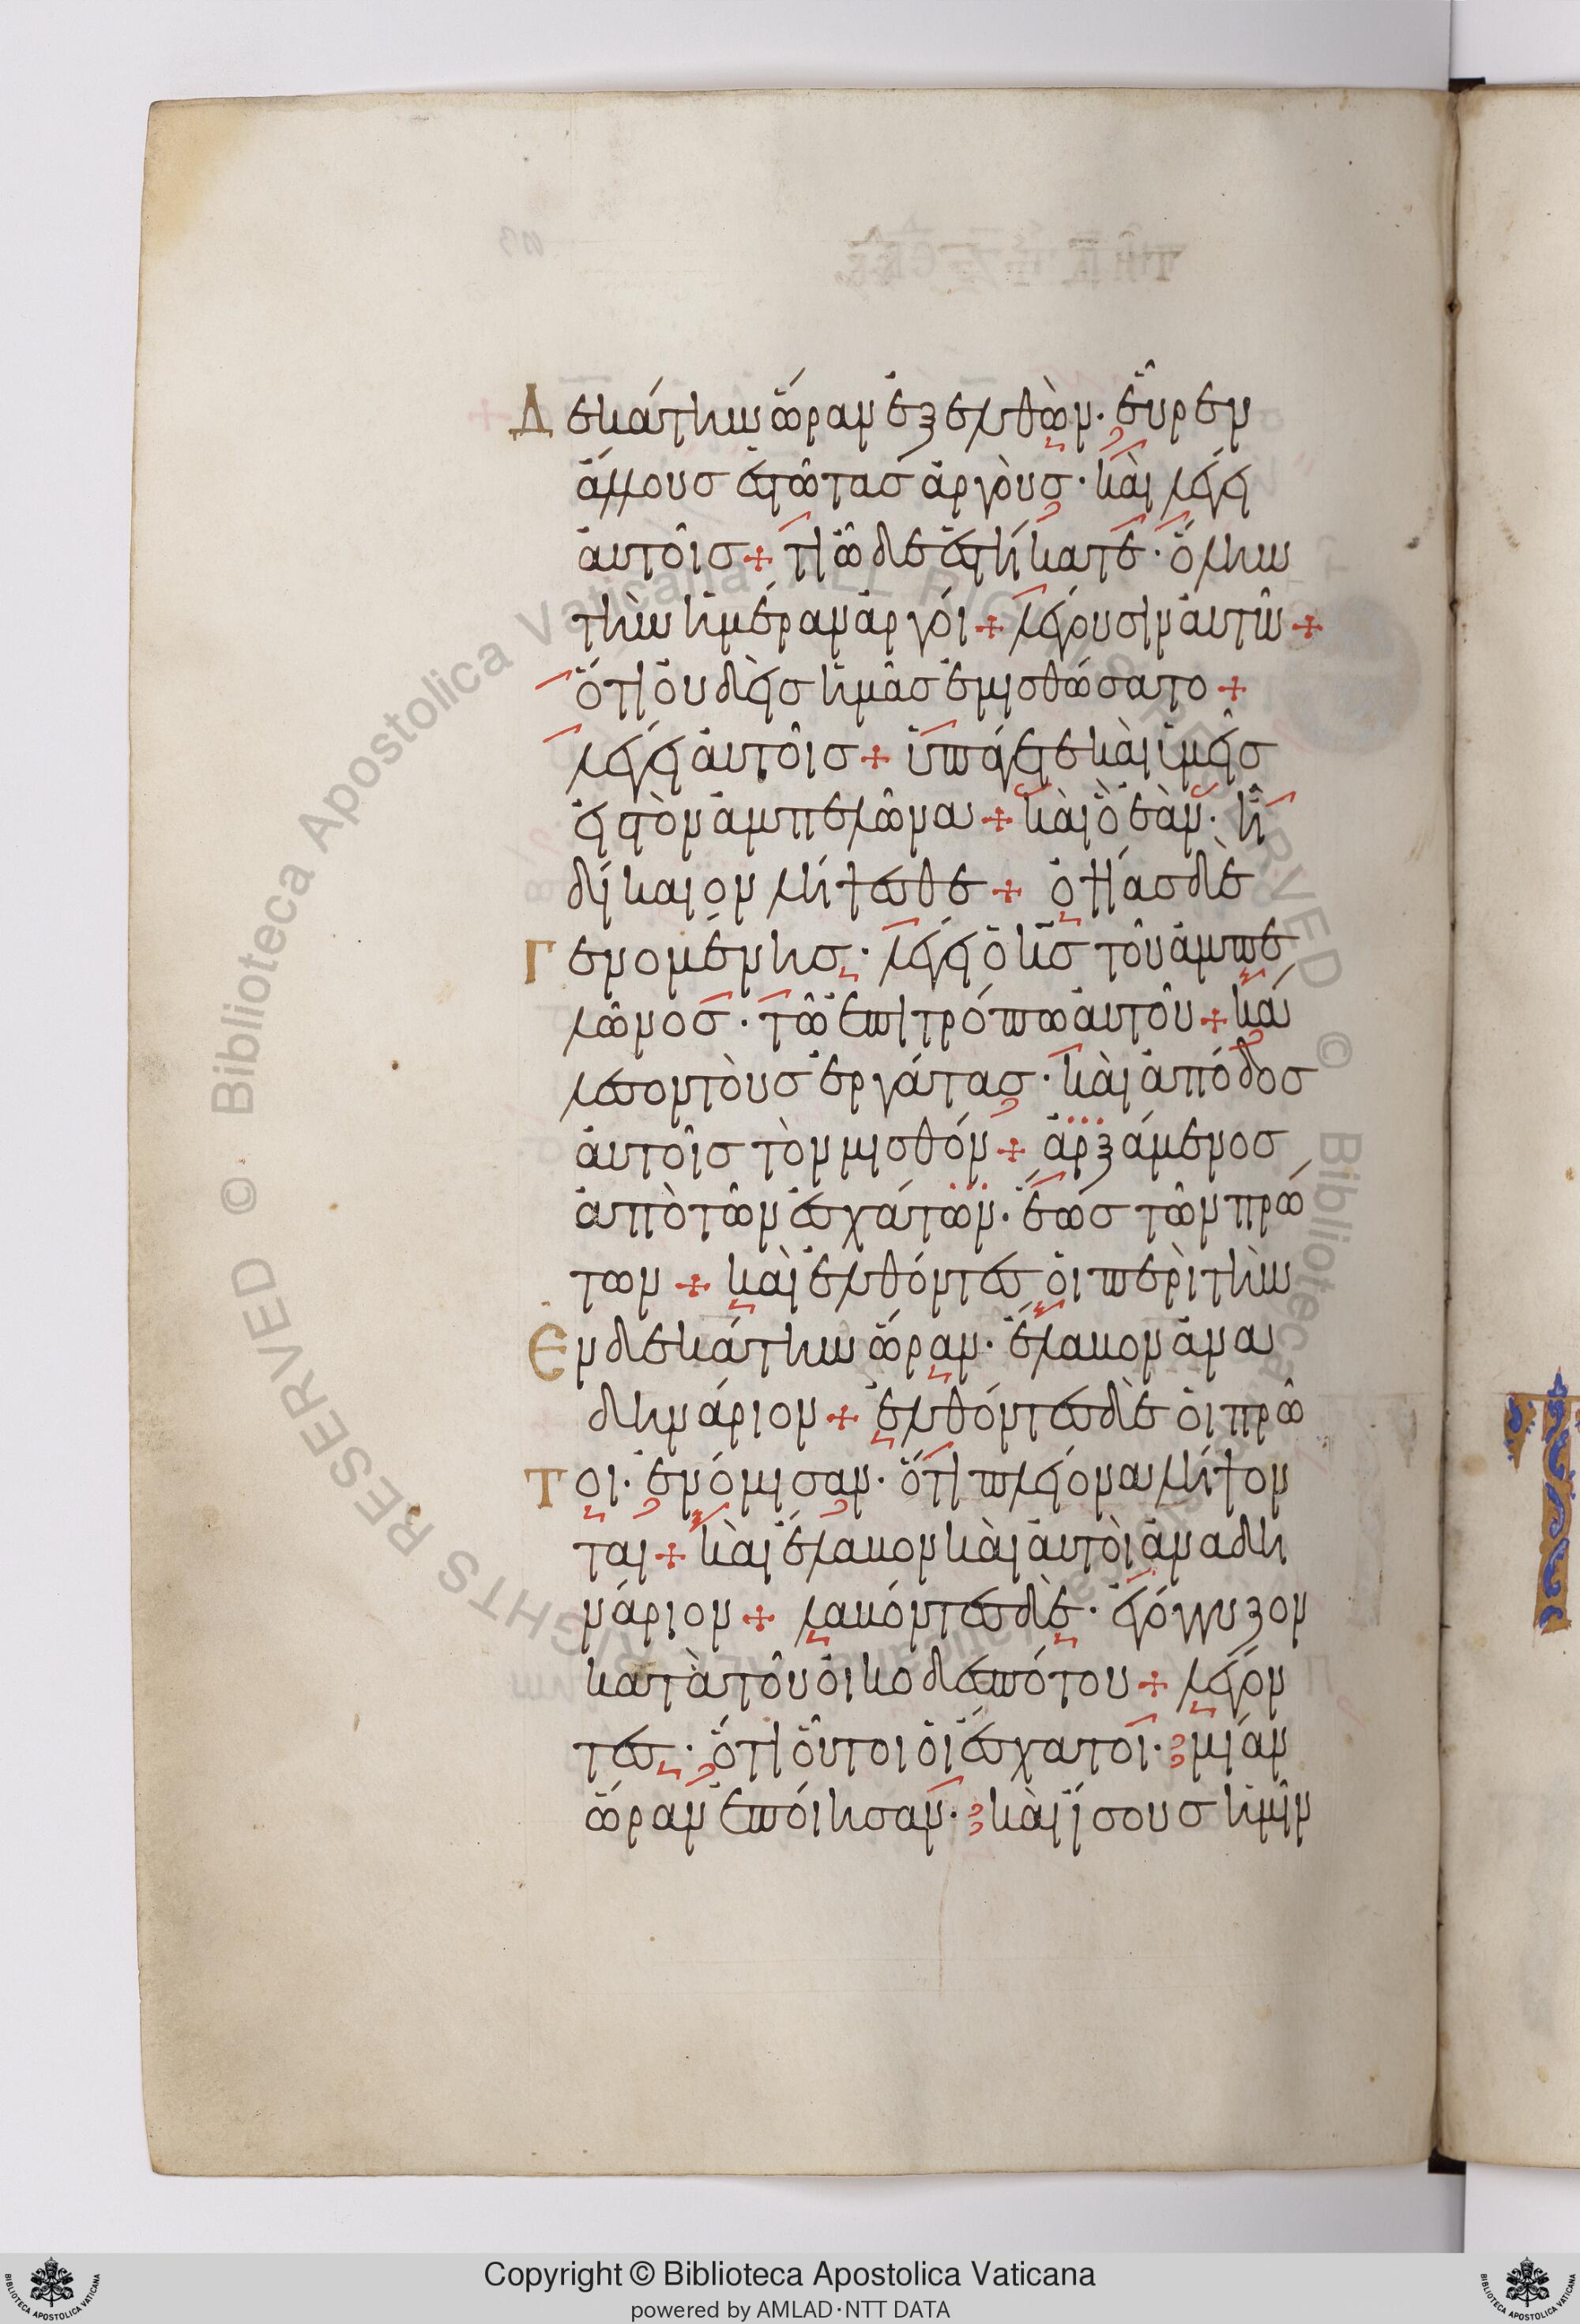 Δεκάτην ὥραν ἐξελθὼν· εὗρεν
ἄλλους ἑστῶτας ἀργοὺς· καὶ λέγει
αὐτοῖς + τί ὧδε ἑστήκατε· ὅλην
τὴν ἡμέραν ἀργόι + λέγουσιν αὐτῶ +
ὅτι οὐδεὶς ἡμᾶς ἐμισθώσατο +
λέγει αὐτοῖς + ὑπάγετε καὶ ὑμεῖς
εἰς τὸν ἀμπελῶνα + καὶ ὃ ἐὰν· ἦ
δίκαιον λήψεσθε + ὀψίας δὲ
Γενομένης· λέγει ὁ κ̅ς̅ τοῦ ἀμπε
λῶνος· τῶ ἐπιτρόπω αὐτοῦ + κά
λεσον τοὺς ἐργάτας· καὶ ἀπόδος
αὐτοῖς τὸν μισθόν + ἀρξάμενος
ἀπὸ τῶν ἐσχάτων· ἕως τῶν πρώ
των + καὶ ἐλθόντες οἱ περὶ τὴν
Ενδεκάτην ὥραν· ἔλαβον ἀνα
δηνάριον + ἐλθόντες δὲ οἱ πρῶ
Τοι· ἐνόμισαν· ὅτι πλείονα λήψον
ται + καὶ ἔλαβον καὶ αὐτοὶ ἀνα δη
νάριον + λαβόντες δὲ· ἐγόγγυζον
κατὰ τοῦ οἰκοδεσπότου + λέγον
τες· ὅτι οὗτοι οἱ ἔσχατοι· μίαν
ὥραν ἐποίησαν· καὶ ἴσους ἡμῖν
Copyright © Biblioteca Apostolica Vaticana
powered by AMLAD·NTT DATA